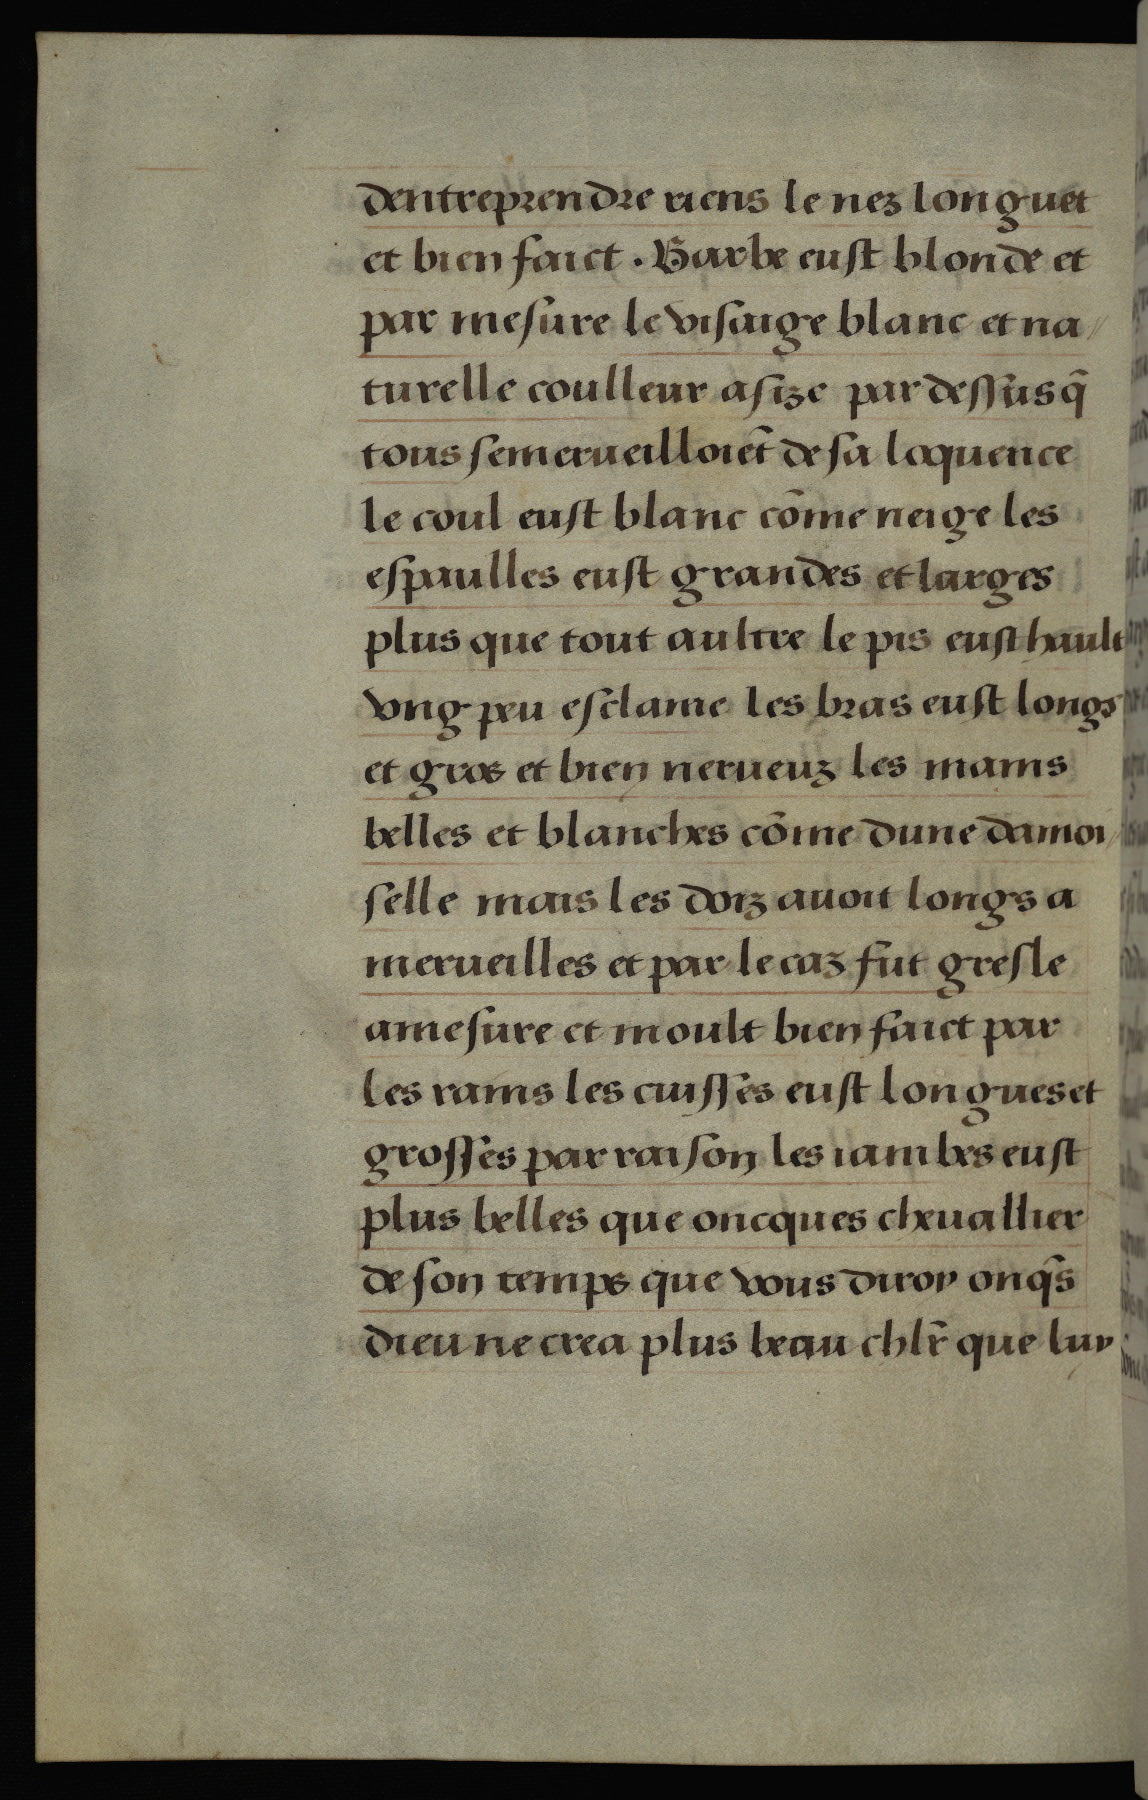 dentreprendre riens le nez longuet
et bien faict . Barbe eust blonde et
par mesure le visaige blanc et na//
turelle coulleur asize par dessus q̃
tous semerueilloiẽt de sa loquence
le coul eust blanc cõme neige les
espaulles eust grandes et larges
plus que tout aultre le pis eust hault
vng peu esclame les bras eust longs
et gros et bien nerueuz les mains
belles et blanches cõme dune damoi//
selle mais les doiz auoit longs a
merueilles et par le caz fut gresle
amesure et moult bien faict par
les rains les cuisses eust longues et
grosses par raison les iambes eust
plus belles que oncques cheuallier
de son temps que vous diroy onq̃s
dieu ne crea plus beau chlr̃ que luy